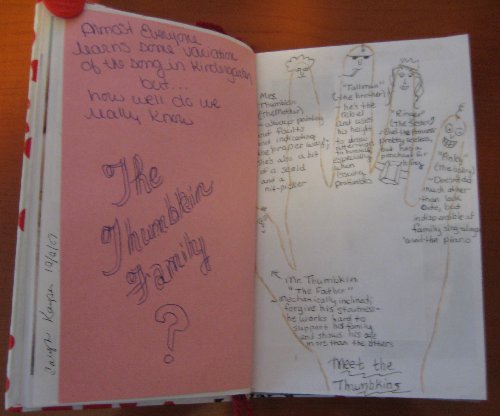 Almost Everyone
learns some variation
of the song in Kindergarten
but...
how well do we
really know
The
Thumbkin
Family
?
12/2/07
Mrs.
Thumbkin
(the Mother)
always pointing
out faults
and indicating
the proper way;
she's also a bit
of a scold
and a
nit-picker
"Tallman"
(the brother)
he's the
rebel
and uses
his height
to draw
attention
to himself
especially
when
issuing
profanities
"Ringer"
(the Sister)
and the princess
pretty useless,
but has a
penchant for
bling
"Pinky"
(the baby)
Doesn't do
much other
than look
cute, but
indispensible at
family sing-alongs
and the piano
Mr. Thumbkin
"The Father"
Mechanically inclined;
forgive his stoutness-
he works hard to
support his family
and shows his age
more than the others
Meet the
Thumbkins